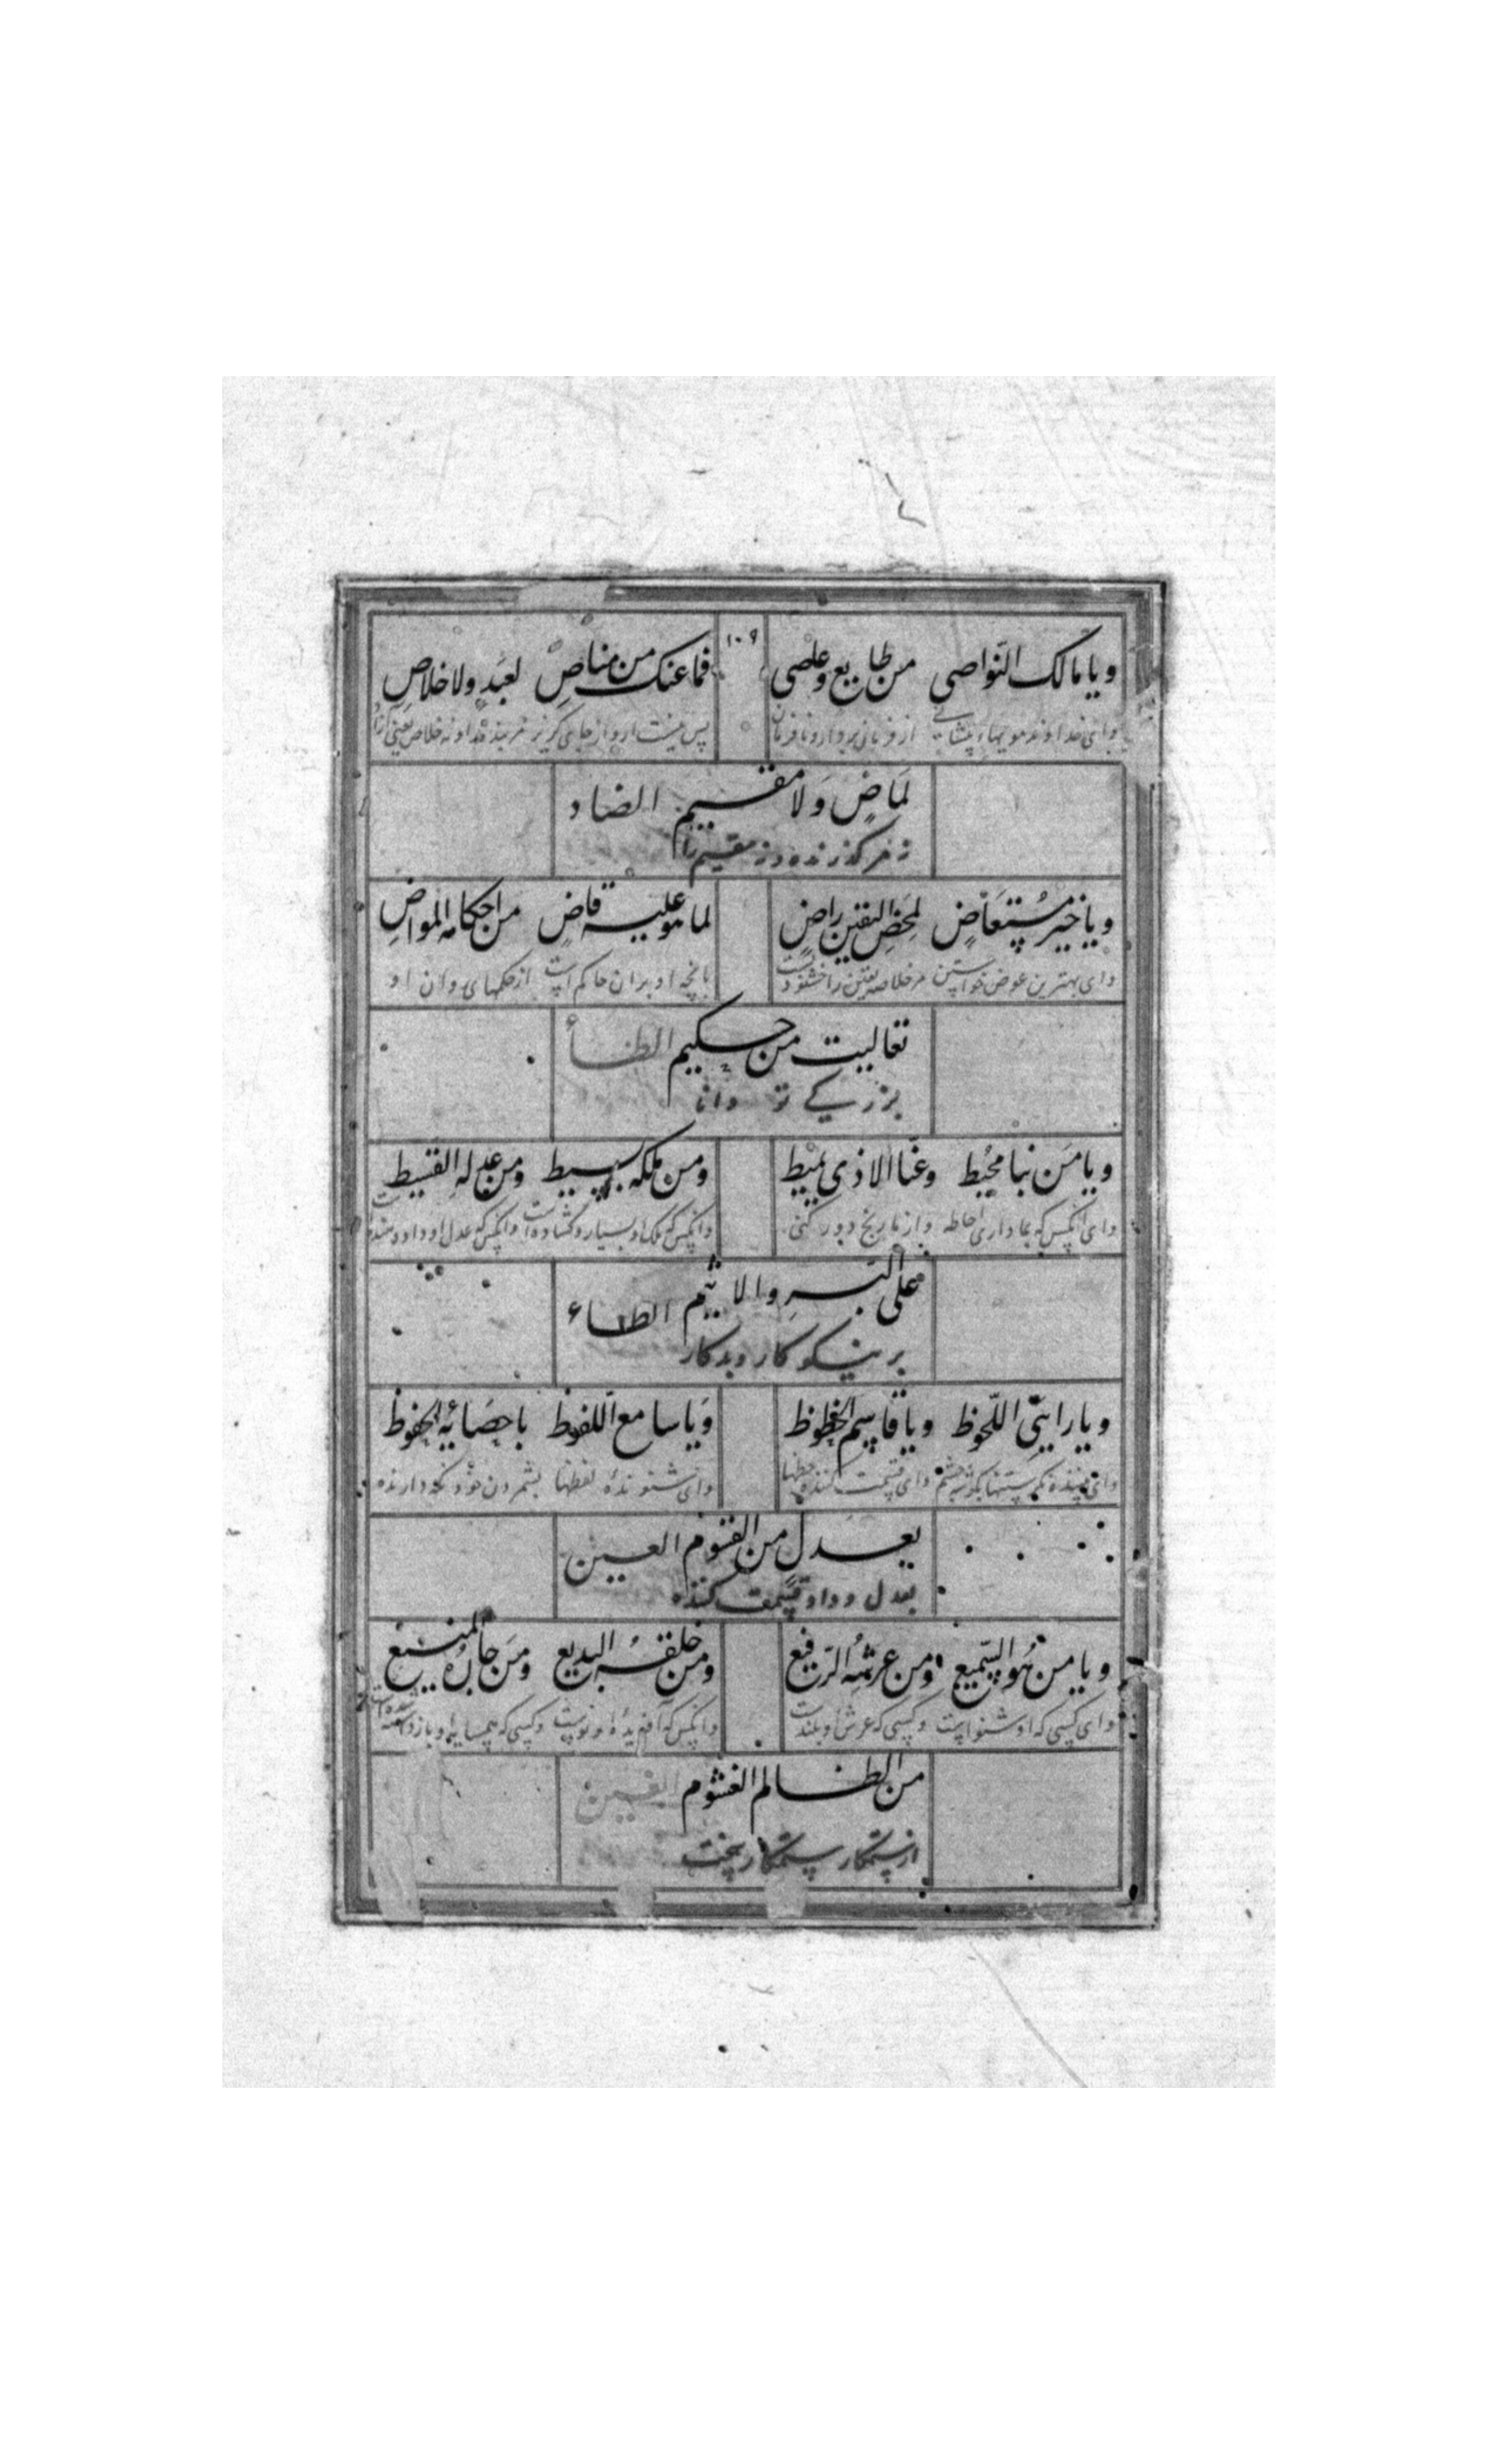 ویا مالک النواصی من طایع وعاصی ۱۰۹ فما عنک من مناصٍ لعبدٍ ولا خلاصِ
وای خداوند مویهاء پیشانی از فرمان بردار و نافرمان پس نیست از تو از جای گریز مر بنده را و نه خلاص یعنی
لماضٍ وَلا مقیم الضاد
نه مر گذرنده و نه مقیم را
ویا خیر مُستَعَاضٍ لمحضِ الیقین راضٍ لما هو علیه قاضٍ من احکامه المواضِ
وای بهترین عوض خواستن مر خلاصه یقین را خشنودست بانچه او بران حاکم است از حکمهای روان او
تعالیت من حکیم الظاأ
بزرگی تو دانا
ویا مَن بنا محُیط وعنّا الاذی یمیط ومن ملکه بسیط ومن عدله القسیط
وای آنکس که بما داری احاطه واز ما رنج دور کنی وانکس که ملک او بسیار و گشاده است وانکس که عدل او
علی البَرِ والاثیم الطاء
بر نیکوکار و بدکار
ویا رایی اللّحوظ ویا قاسم الحظوظ وَیا سامع اللّفوظ باحصایه الحفوظ
وای بیننده نگرستنها بگوشه چشم وای قسمت کننده حظها وای شنونده لفظها بشمردن خود نگه دارنده
یعدل من القسوم العین
بعدل و داد قسمت کننده
ویا من هُو السّمیع ومن عرشهُ الرّفیع ومن خلقهُ البدیع ومَن جارُه المنیع
وای کسی که او شنواست وکسی که عرش او بلندست وانکس که آفریدهٔ او نوست وکسی که همسایهٔ او
من الظالم الغشوم الغین
از ستمکار ستمکار سخت